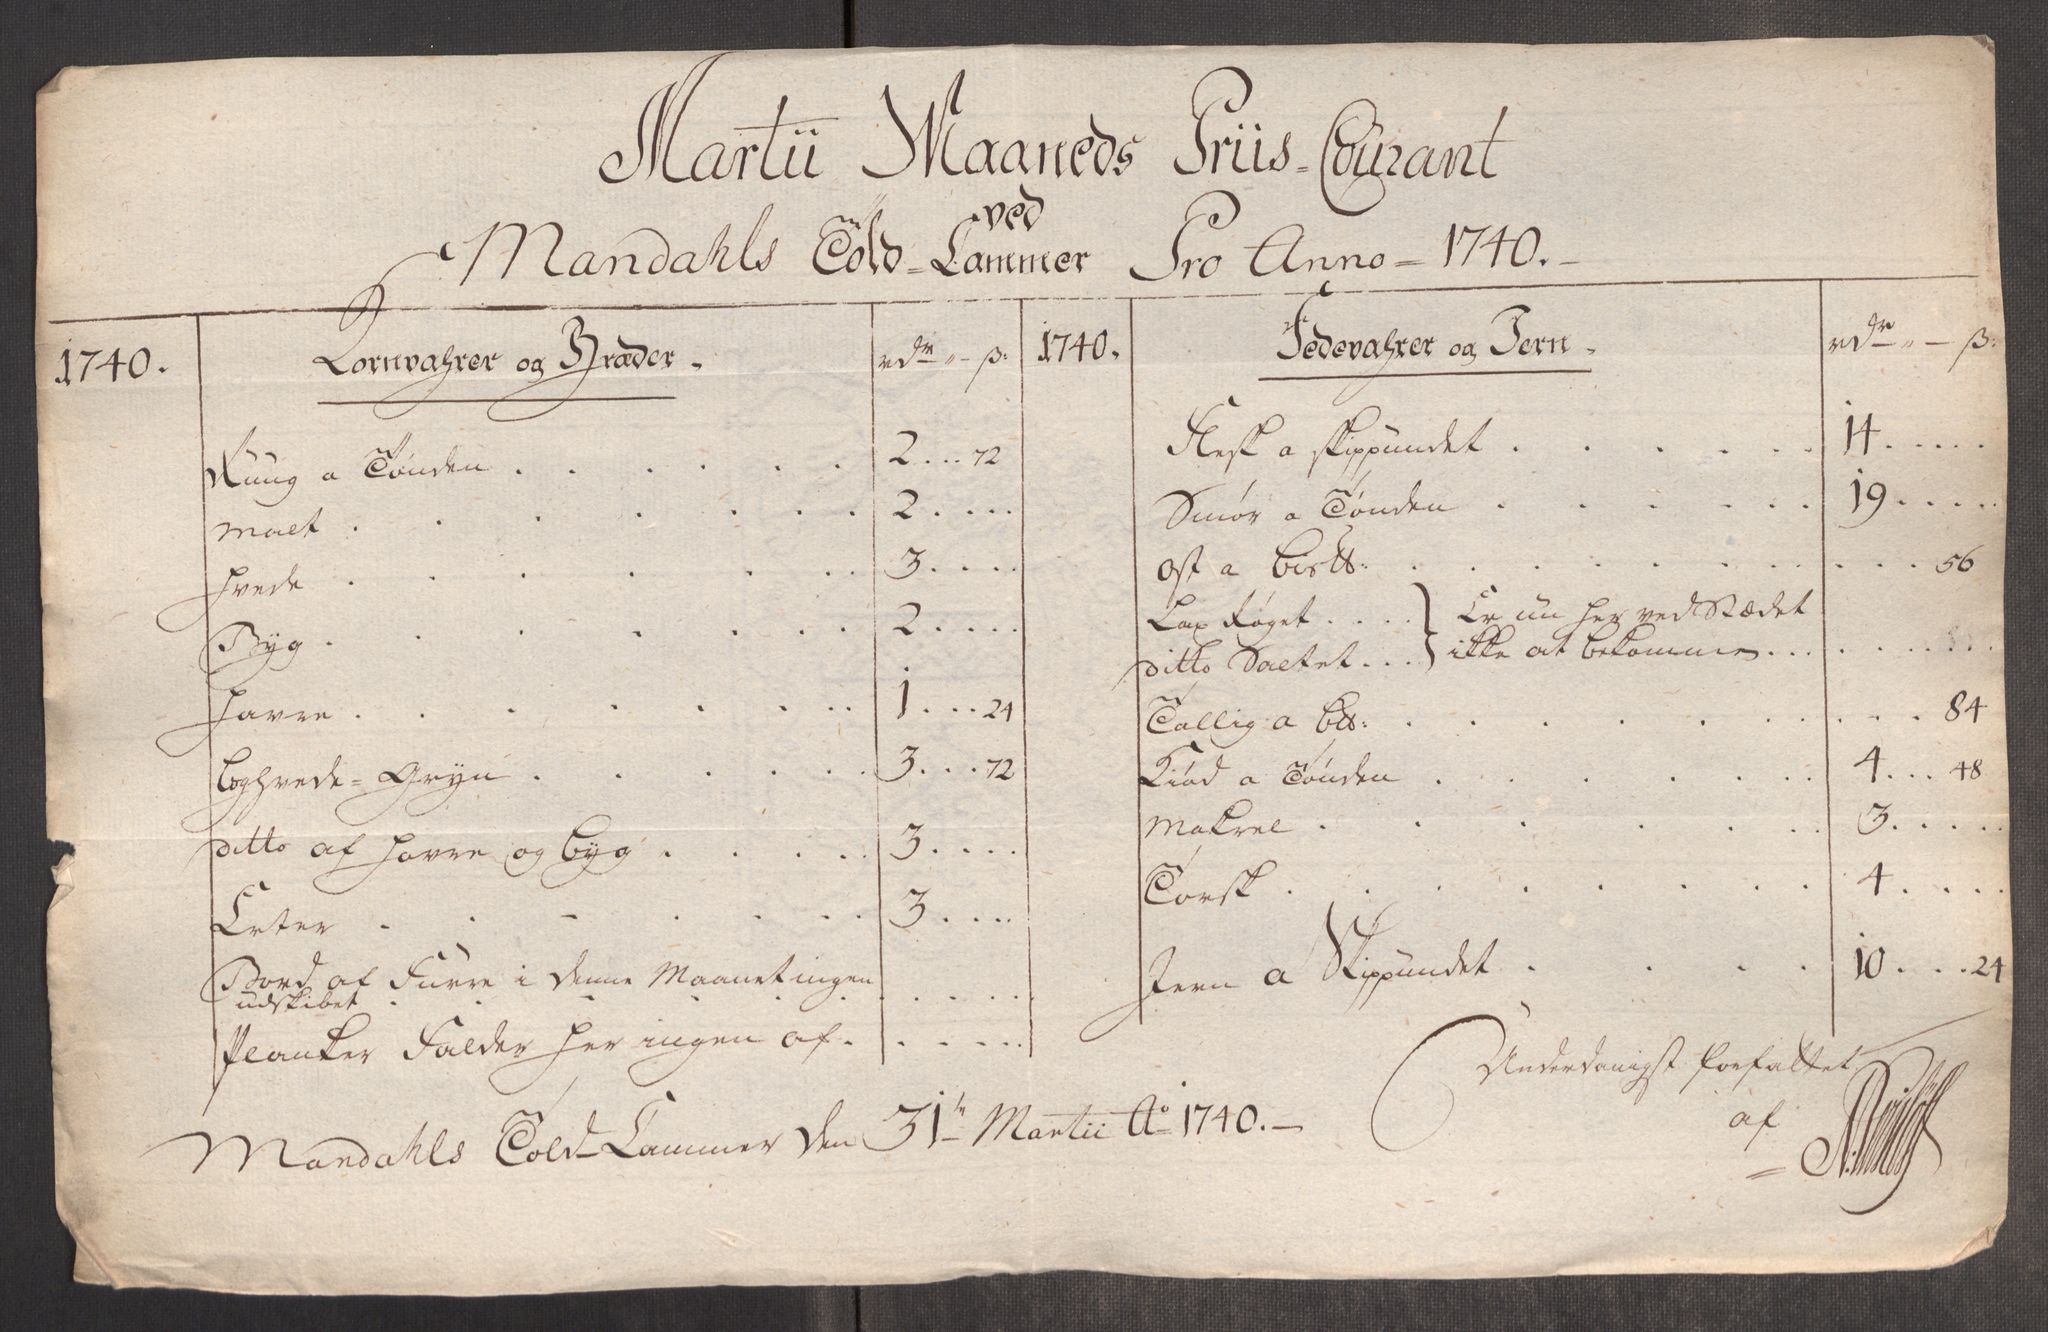 Martii Maaneds Priis-Courant
ved
Mandahls Told-Cammer Pro Anno-1740.-
1740.
Kornvahrer og Bræder.
rdr - ß:
Ruug a Tønden . . . . . 2 ... 72
Malt . . . . . . 2 ....
Hvede . . . . . . 3 ....
Byg . . . . . . 2 ....
Havre . . . . . . 1 ... 24
boghvede-Gryn . . . . . 3 ... 72
ditto af Havre og byg . . . . 3 ....
Erter . . . . . . 3 ....
Bord af Furre i denne Maanet ingen
udskibet . . . . . .
Planker Falder her ingen af . . . .
1740.
Fedevahrer og Jern.
rdr - ß:
Flesk a skippundet . . . . . 14 ....
Smør a Tønden . . . . . 19 ....
Ost a . . . . . . 56
Lax Røget .... } Er nu her ved Stædet
ditto Saltet ... } ikke at bekomme ......
Tallig a . . . . . . 84
Kiød a Tønden . . . . . 4 ... 48
Makrel . . . . . . 3 ....
Torsk . . . . . . 4 ....
Jern a Skippundet . . . . 10 ... 24
Underdanigst forfattet
af
Mandahls Told-Cammer den 31te Martii Ao 1740.-